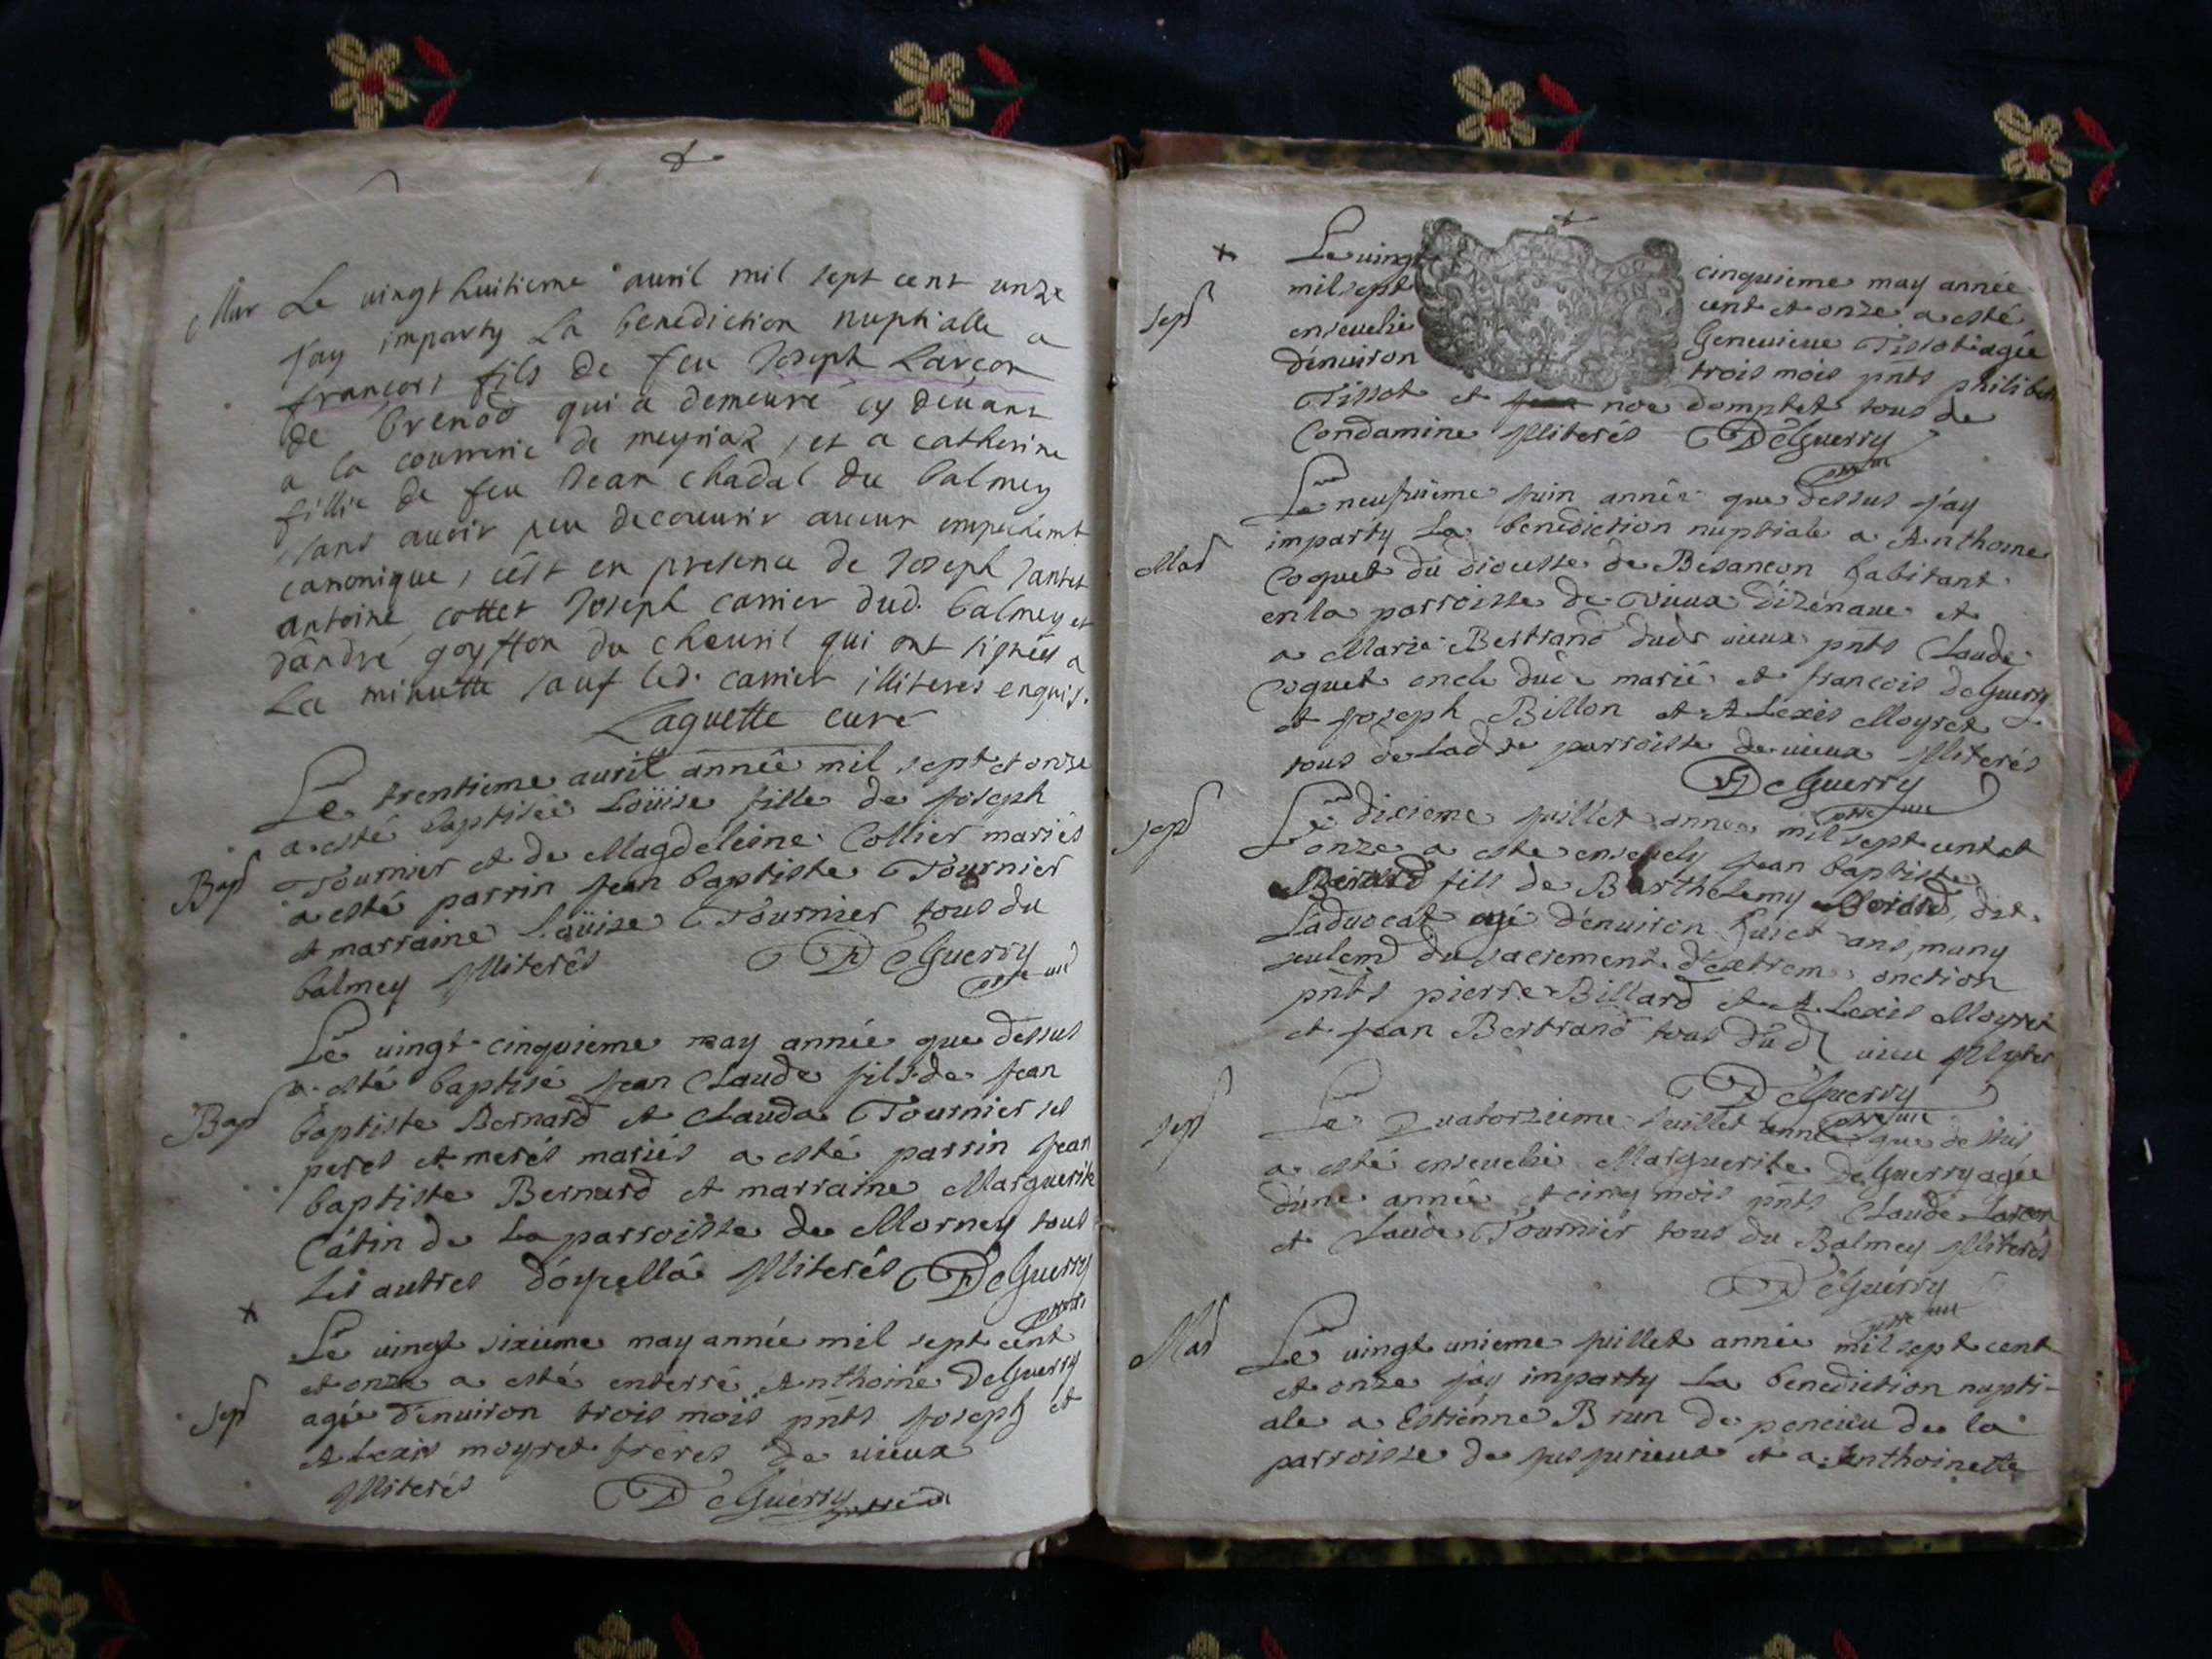 Mar Le vingt huitieme avril mil sept cent unze
j'ay imparty La benediction nuptialle a
francois fils de feu Joseph Larçon
de brenod qui a demeuré cy devant
a la couvrerie de meyriaz, et a catherine
fillie de feu Jean chadal du balmey
sans auoir peu decouurir aucun empechemt
canonique, c'ést en presence de Joseph Jantet
antoine cottet Joseph carrier dud. balmey et
d'andré goyffon du cheuril qui ont signéés a
La minutte sauf led. carrier illiteres enquis.
Laguette curé
Le trentieme auril année mil sept et onze
a esté baptiseé Loüise fille de joseph
Bapt Tournier et de Magdeleine Collier mariés
a esté parrin jean baptiste Tournier
et marraine Loüise Tournier tous du
balmey illiterés DeGuerry
Le vingt cinquieme may année que dessus
a esté baptisé jean Claude fils de jean
Bapt baptiste Bernard et Clauda Tournier ses
peres et merés mariés a esté parrin jean
baptiste Bernard et marraine Marguerite
Cátin de La parroisse de Mornay tous
Les autres d'oyella illiterés DeGuerry
x
Le vingt sixieme may année mil sept cent
et onze a esté enterré Anthoine DeGuerry
sept agée d'enuiron trois mois pnts joseph et
Alexis moyret fréres de vieux
illiterés DeGuerry
x Le vingt cinquieme may année
sept mil sept cent et onze a esté
enseuelie Geneuieue Tissot agée
d'enuiron trois mois pnts philibert
Tissot et noe domptet tous de
Condamine illiterés DeGuerry
Le neufuieme juin année que dessus j'ay
imparty La benediction nuptiale a Anthoine
Mar Coquet du diocesse de Besancon habitant
en la parroisse de vieux d'izenaue et
a Marie Bertrand dudt vieux pnts Claude
Coquet oncle dud marié et francois deGuerry
et joseph Billon et Alexis Moyret
tous de Ladte parroisse de vieux illiterés
DeGuerry
sept Le dixieme juillet année mil sept cent et
onze a este enseuely jean baptiste
Morard fils de Barthelemy Morard, dit
Laduocat agé d'enuiron huict ans, muny
seulemt du sacrement d'extreme onction
pnts pierre Billard et Alexis Moyret
et jean Bertrand tous dud vieu illiter
DeGuerry
sept Le Quatorzieme juillet année que dessus
a esté enseuelie Marguerite DeGuerry agée
d'une année et cinq mois pnts Claude Larcon
et Claude Tournier tous du Balmey illiterés
DeGuerry
Mar Le vingt unieme juillet année mil sept cent
et onze j'ay imparty La benediction nupti-
ale a Estienne Brun de pencieu de la
parroisse de jusjurieux et a Anthoinette